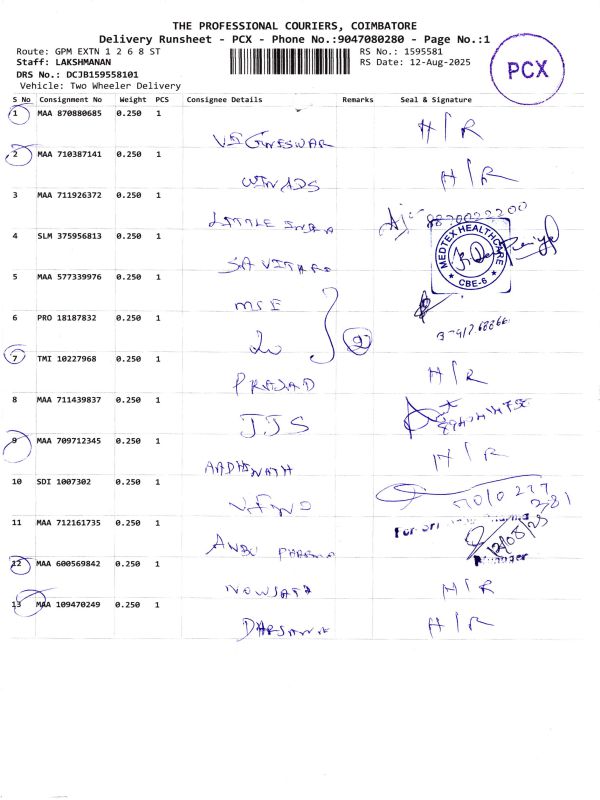 THE PROFESSIONAL COURIERS, COIMBATORE
Delivery Runsheet - PCX - Phone No.:9047080280 - Page No.:1
Route: GPM EXTN 1 2 6 8 ST RS No.: 1595581
Staff: LAKSHMANAN RS Date: 12-Aug-2025
DRS No.: DCJB159558101
Vehicle: Two Wheeler Delivery
PCX
S No Consignment No Weight PCS Consignee Details Remarks Seal & Signature
1 MAA 870880685 0.250 1 H/R
VIGNESWAR
2 MAA 710387141 0.250 1 H/R
WINADS
3 MAA 711926372 0.250 1
LITTLE INDIA
4 SLM 375956813 0.250 1 MEDTEX HEALTHCARE CBE-6
5 MAA 577339976 0.250 1
MSE
6 PRO 18187832 0.250 1
20 2
7 TMI 10227968 0.250 1 H/R
PRASAD
8 MAA 711439837 0.250 1
JJS
9 MAA 709712345 0.250 1 H/R
AADHINATH
10 SDI 1007302 0.250 1
11 MAA 712161735 0.250 1 12/08/25
ANBU PHARMA Manager
12 MAA 600569842 0.250 1 H/R
13 MAA 109470249 0.250 1 H/R